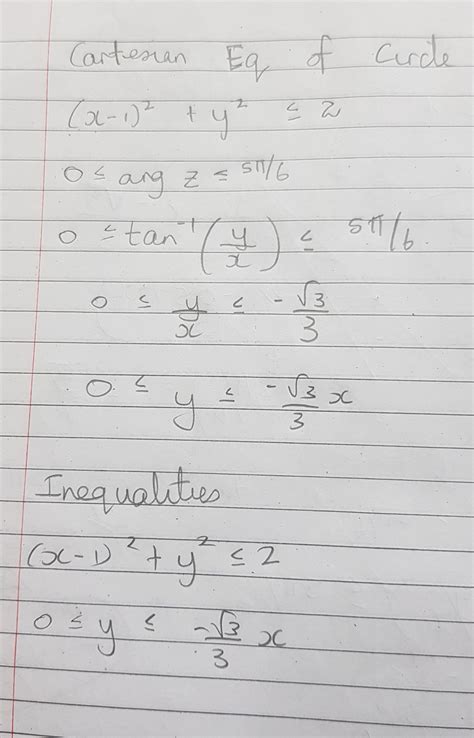 Cartesian Eq of Circle
(x-1)² + y² ≤ 2
0 ≤ arg z ≤ 5π/6
0 ≤ tan⁻¹(y/x) ≤ 5π/6
0 ≤ y/x ≤ -√3/3
0 ≤ y ≤ -√3/3 x
Inequalities
(x-1)² + y² ≤ 2
0 ≤ y ≤ -√3/3 x